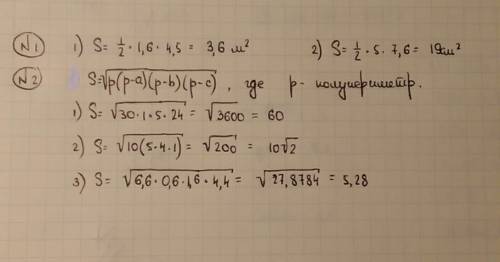 N1 1) S= 1/2 · 1,6 · 4,5 = 3,6 м² 2) S= 1/2 · 5 · 7,6 = 19дм²
N2 S=√(p(p-a)(p-b)(p-c)), где p- полупериметр.
1) S= √(30·1·5·24) = √3600 = 60
2) S= √(10(5·4·1)) = √200 = 10√2
3) S= √(6,6·0,6·1,6·4,4) = √27,8784 = 5,28